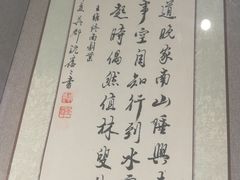 道晚家南山陲興
事空自知行到水
起時偶然值林叟
王維終南別業
吳郡沈
書